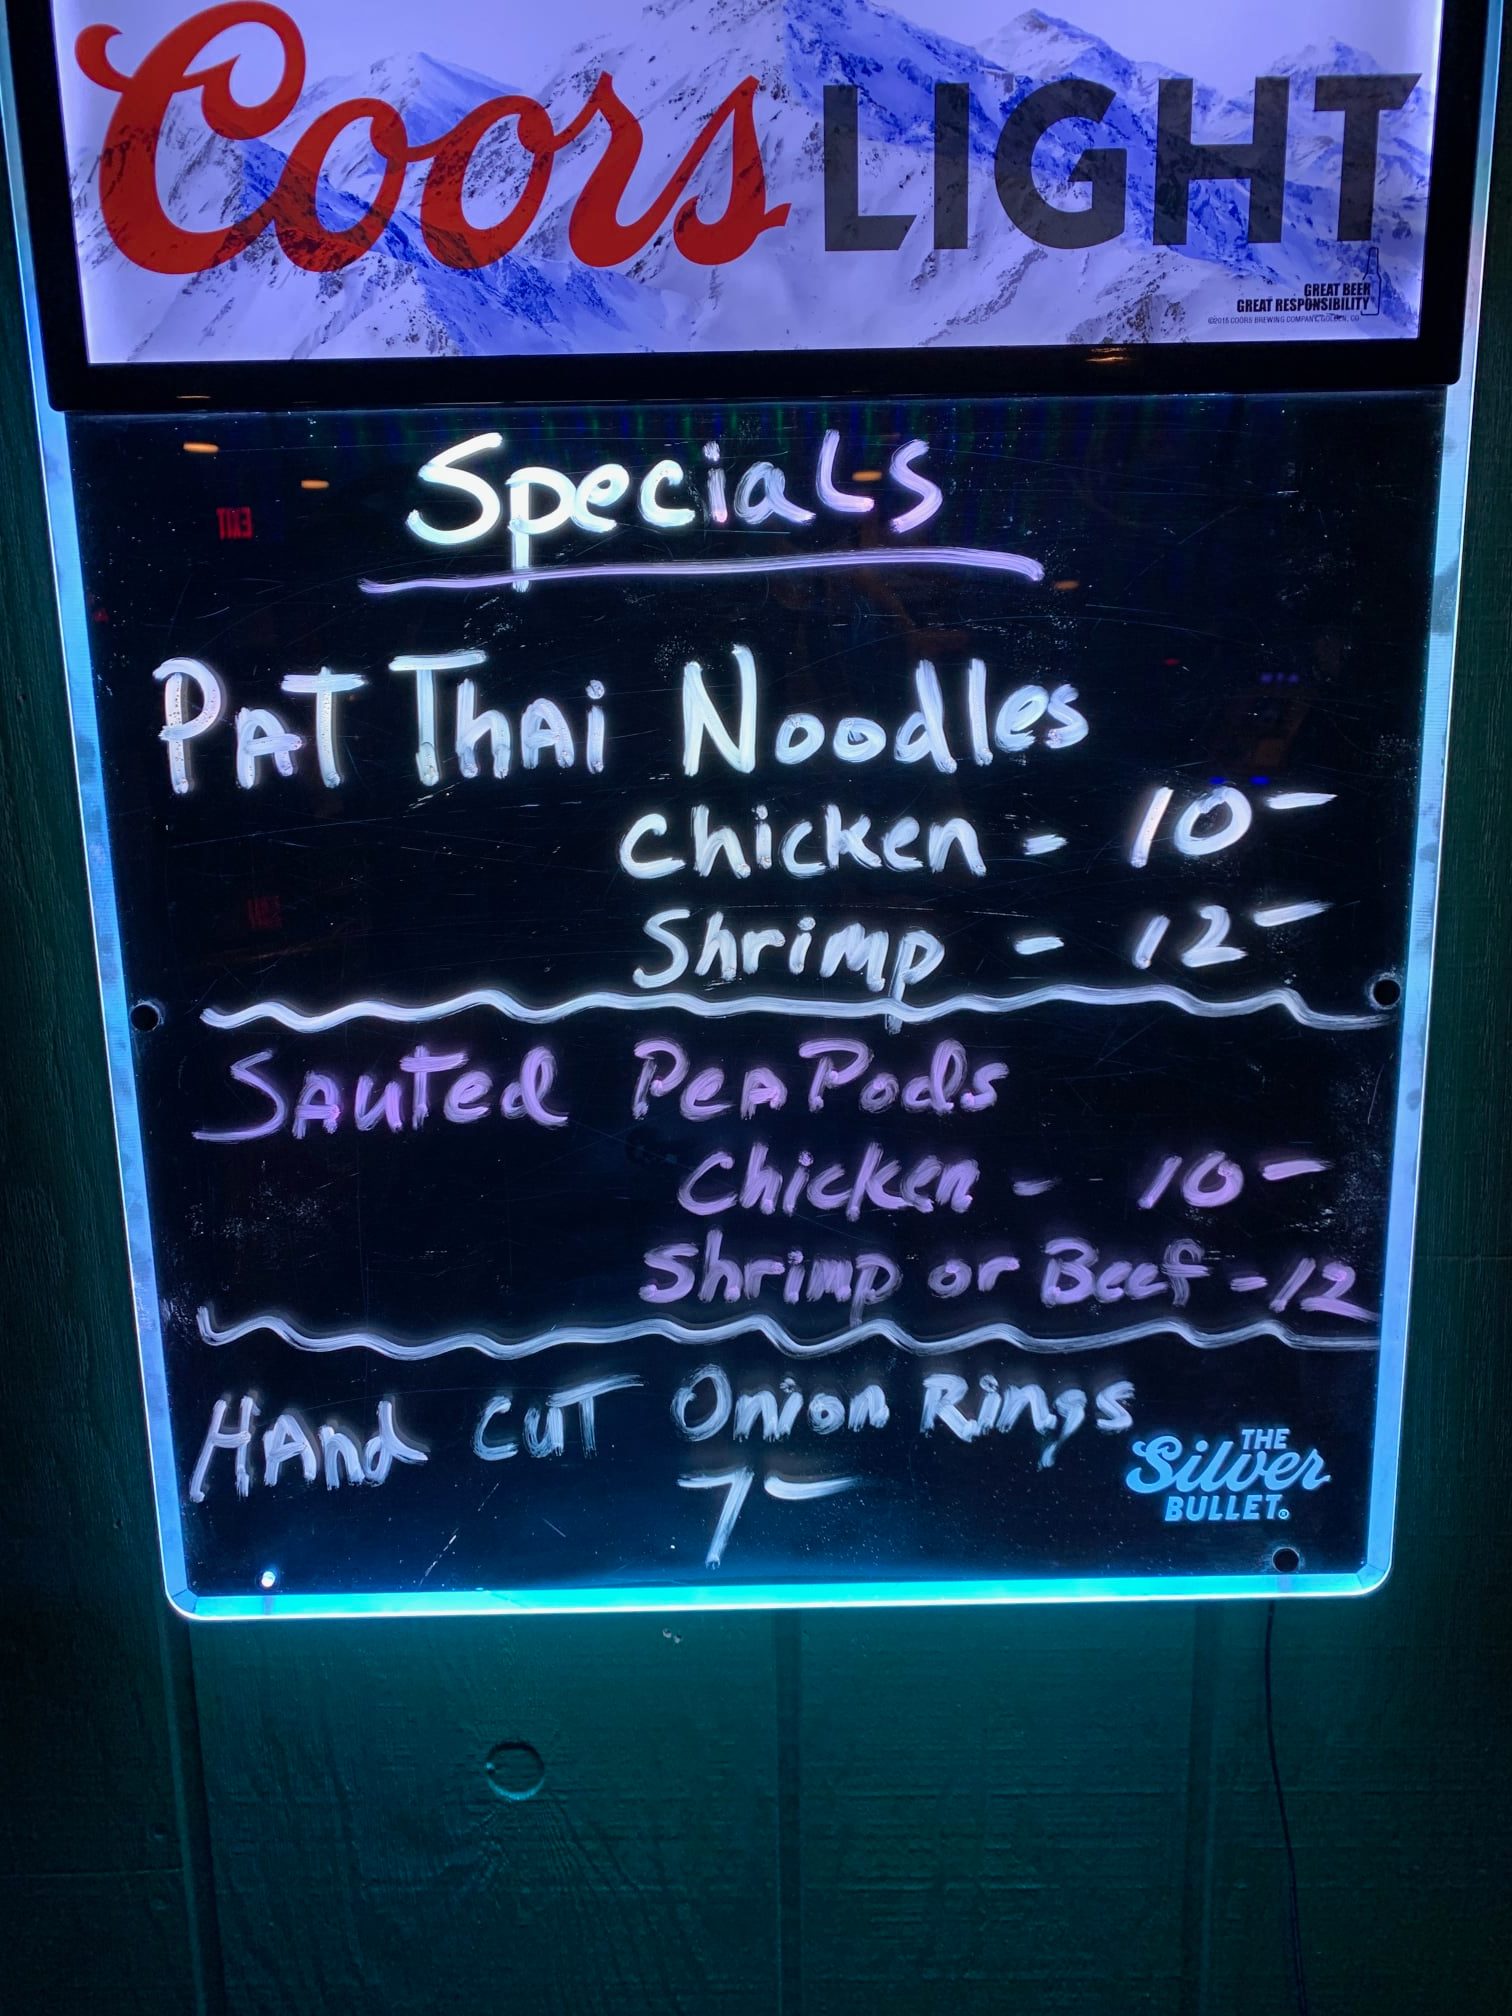 Coors LIGHT
GREAT BEER
GREAT RESPONSIBILITY
©2016 COORS BREWING COMPANY, GOLDEN, CO
Specials
PAT Thai Noodles
Chicken - 10-
Shrimp - 12-
Sauted Pea Pods
Chicken - 10-
Shrimp or Beef - 12
Hand cut Onion Rings
7-
THE
Silver
BULLET®